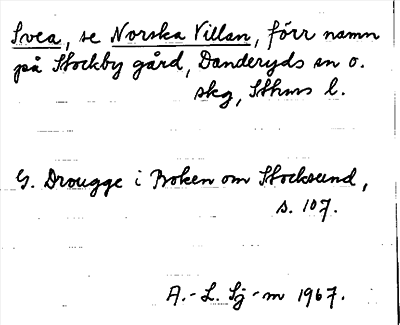 Svea, se Norska Villan, förr namn
på Stockby gård, Danderyds sn o.
skg, Sthms l.
G. Drougge i Boken om Stocksund,
s. 107.
A.-L. Sj-m 1967.